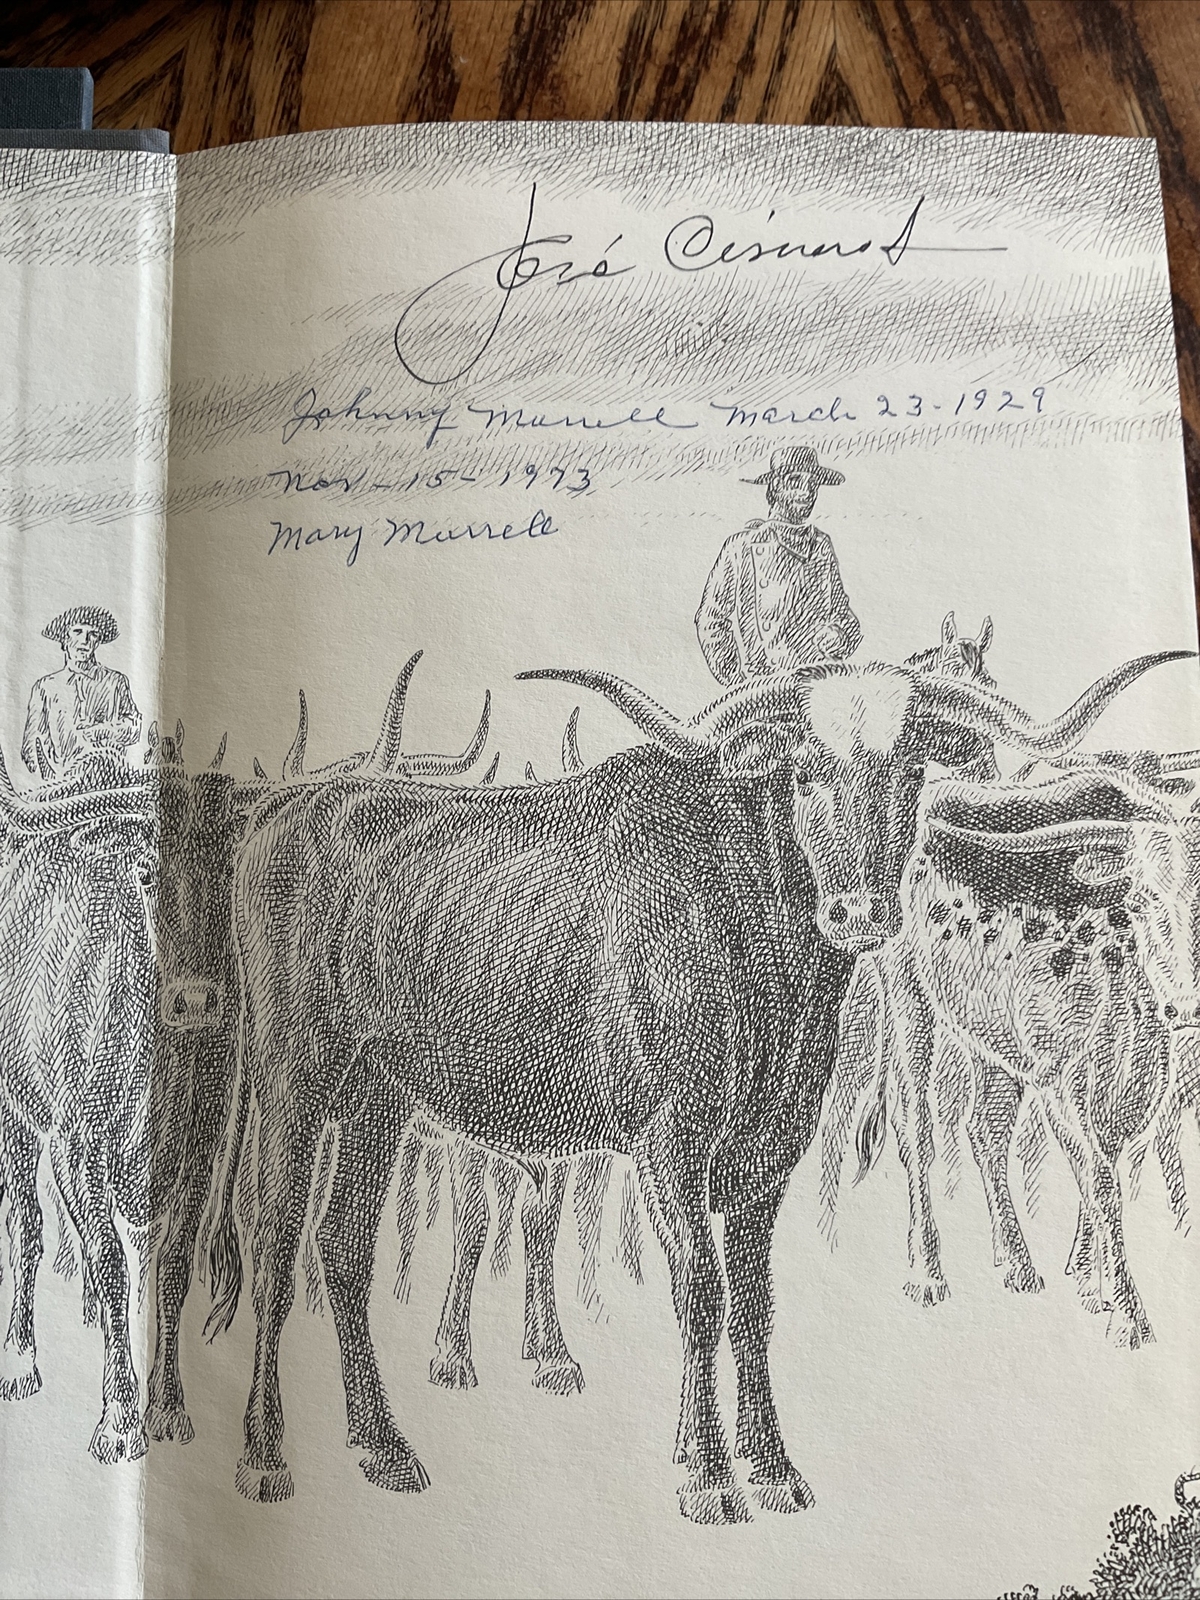 José Cisneros
Johnny Murrell March 23-1929
Nov-15-1973
Mary Murrell